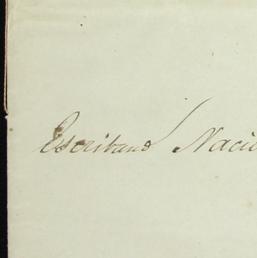 Escribano Nacio